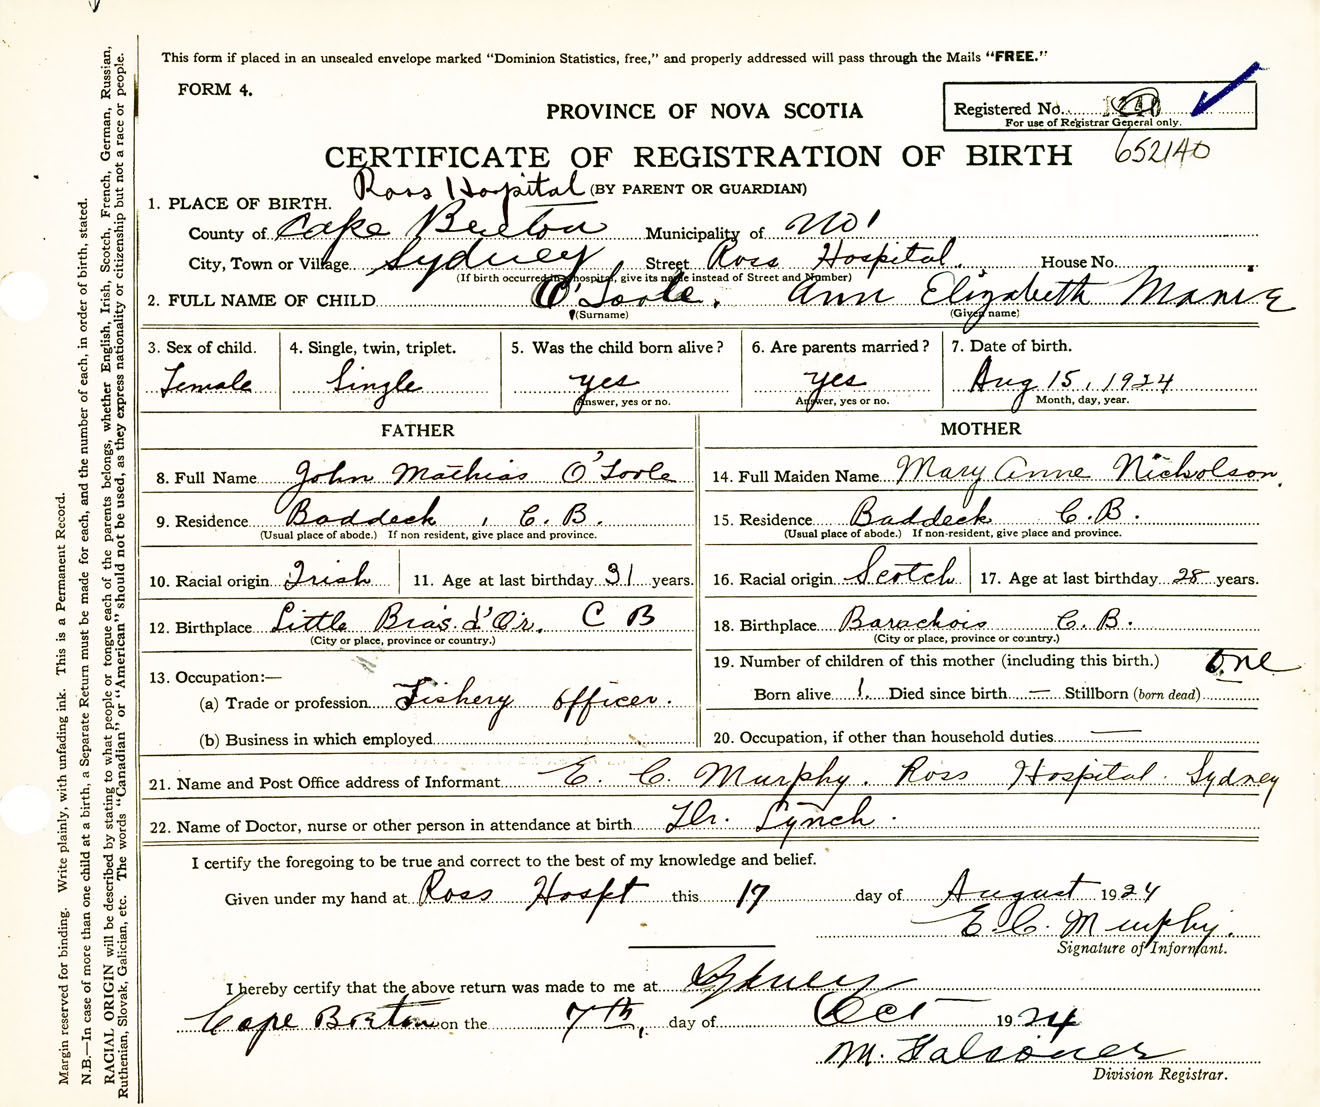 This form if placed in an unsealed envelope marked "Dominion Statistics, free," and properly addressed will pass through the Mails "FREE."
FORM 4.
Registered No.
For use of Registrar General only.
PROVINCE OF NOVA SCOTIA
652140
CERTIFICATE OF REGISTRATION OF BIRTH
Ross Hospital (BY PARENT OR GUARDIAN)
1. PLACE OF BIRTH.
County of Cape Breton Municipality of No 1
City, Town or Village Sydney Street Ross Hospital. House No.
(If birth occurred in hospital, give its name instead of Street and Number)
2. FULL NAME OF CHILD O'Toole, Ann Elizabeth Marie
(Surname) (Given name)
3. Sex of child. 4. Single, twin, triplet. 5. Was the child born alive? 6. Are parents married? 7. Date of birth.
Female Single yes yes Aug 15, 1924
Answer, yes or no. Answer, yes or no. Month, day, year.
FATHER MOTHER
8. Full Name John Mathias O'Toole 14. Full Maiden Name Mary Anne Nicholson.
9. Residence Baddeck, C.B. 15. Residence Baddeck C.B.
(Usual place of abode.) If non resident, give place and province. (Usual place of abode.) If non-resident, give place and province.
10. Racial origin Irish 11. Age at last birthday 31 years. 16. Racial origin Scotch 17. Age at last birthday 28 years.
12. Birthplace Little Bras d'Or. C B 18. Birthplace Barachois C.B.
(City or place, province or country.) (City or place, province or country.)
13. Occupation:— 19. Number of children of this mother (including this birth.) one
(a) Trade or profession Fishery officer. Born alive 1. Died since birth — Stillborn (born dead)
(b) Business in which employed 20. Occupation, if other than household duties —
21. Name and Post Office address of Informant E. C. Murphy. Ross Hospital. Sydney
22. Name of Doctor, nurse or other person in attendance at birth Dr. Lynch.
I certify the foregoing to be true and correct to the best of my knowledge and belief.
Given under my hand at Ross Hospt this 17 day of August 1924
E. C. Murphy.
Signature of Informant.
I hereby certify that the above return was made to me at Sydney
Cape Breton on the 7th, day of Oct 1924
M.
Division Registrar.
Margin reserved for binding. Write plainly, with unfading ink. This is a Permanent Record.
N.B.—In case of more than one child at a birth, a Separate Return must be made for each, and the number of each, in order of birth, stated.
RACIAL ORIGIN will be described by stating to what people or tongue each of the parents belongs, whether English, Irish, Scotch, French, German, Russian,
Ruthenian, Slovak, Galician, etc. The words "Canadian" or "American" should not be used, as they express nationality or citizenship but not a race or people.